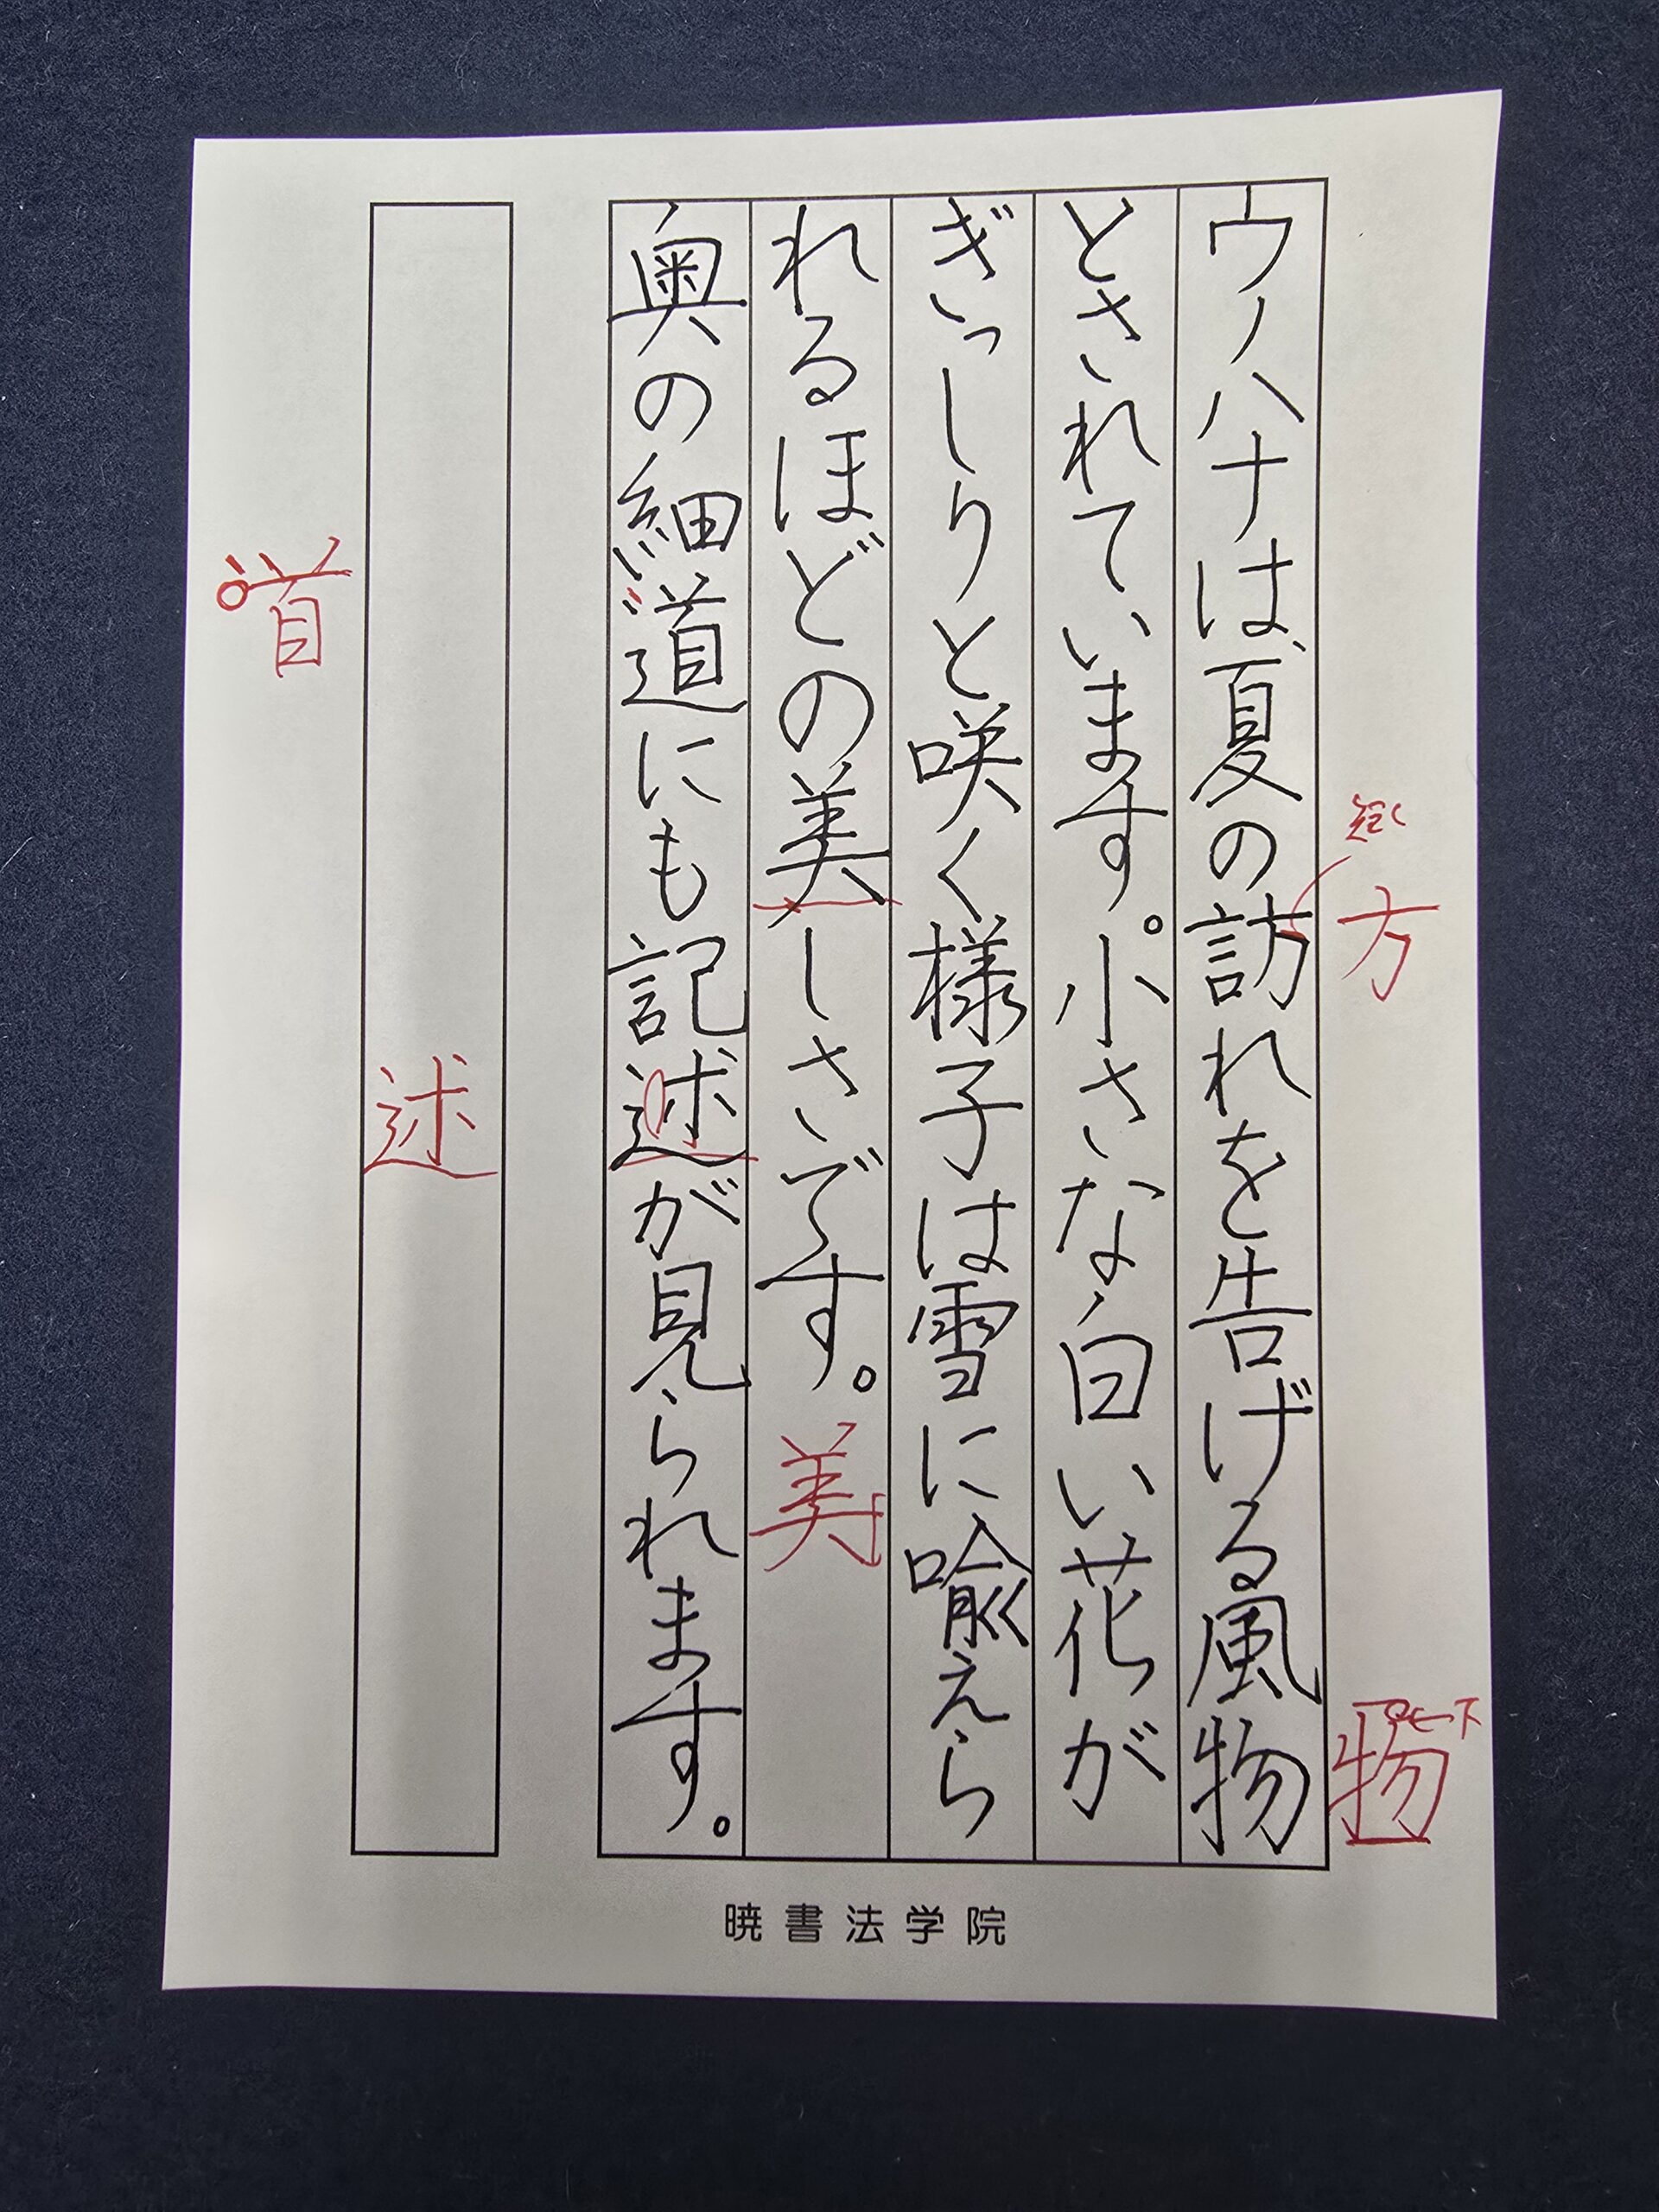 ウノハナは、夏の訪れを告げる風物
とされています。小さな白い花が
ぎっしりと咲く様子は雪に喩えら
れるほどの美しさです。
奥の細道にも記述が見られます。
短く
方
下
物
美
述
首
暁書法学院